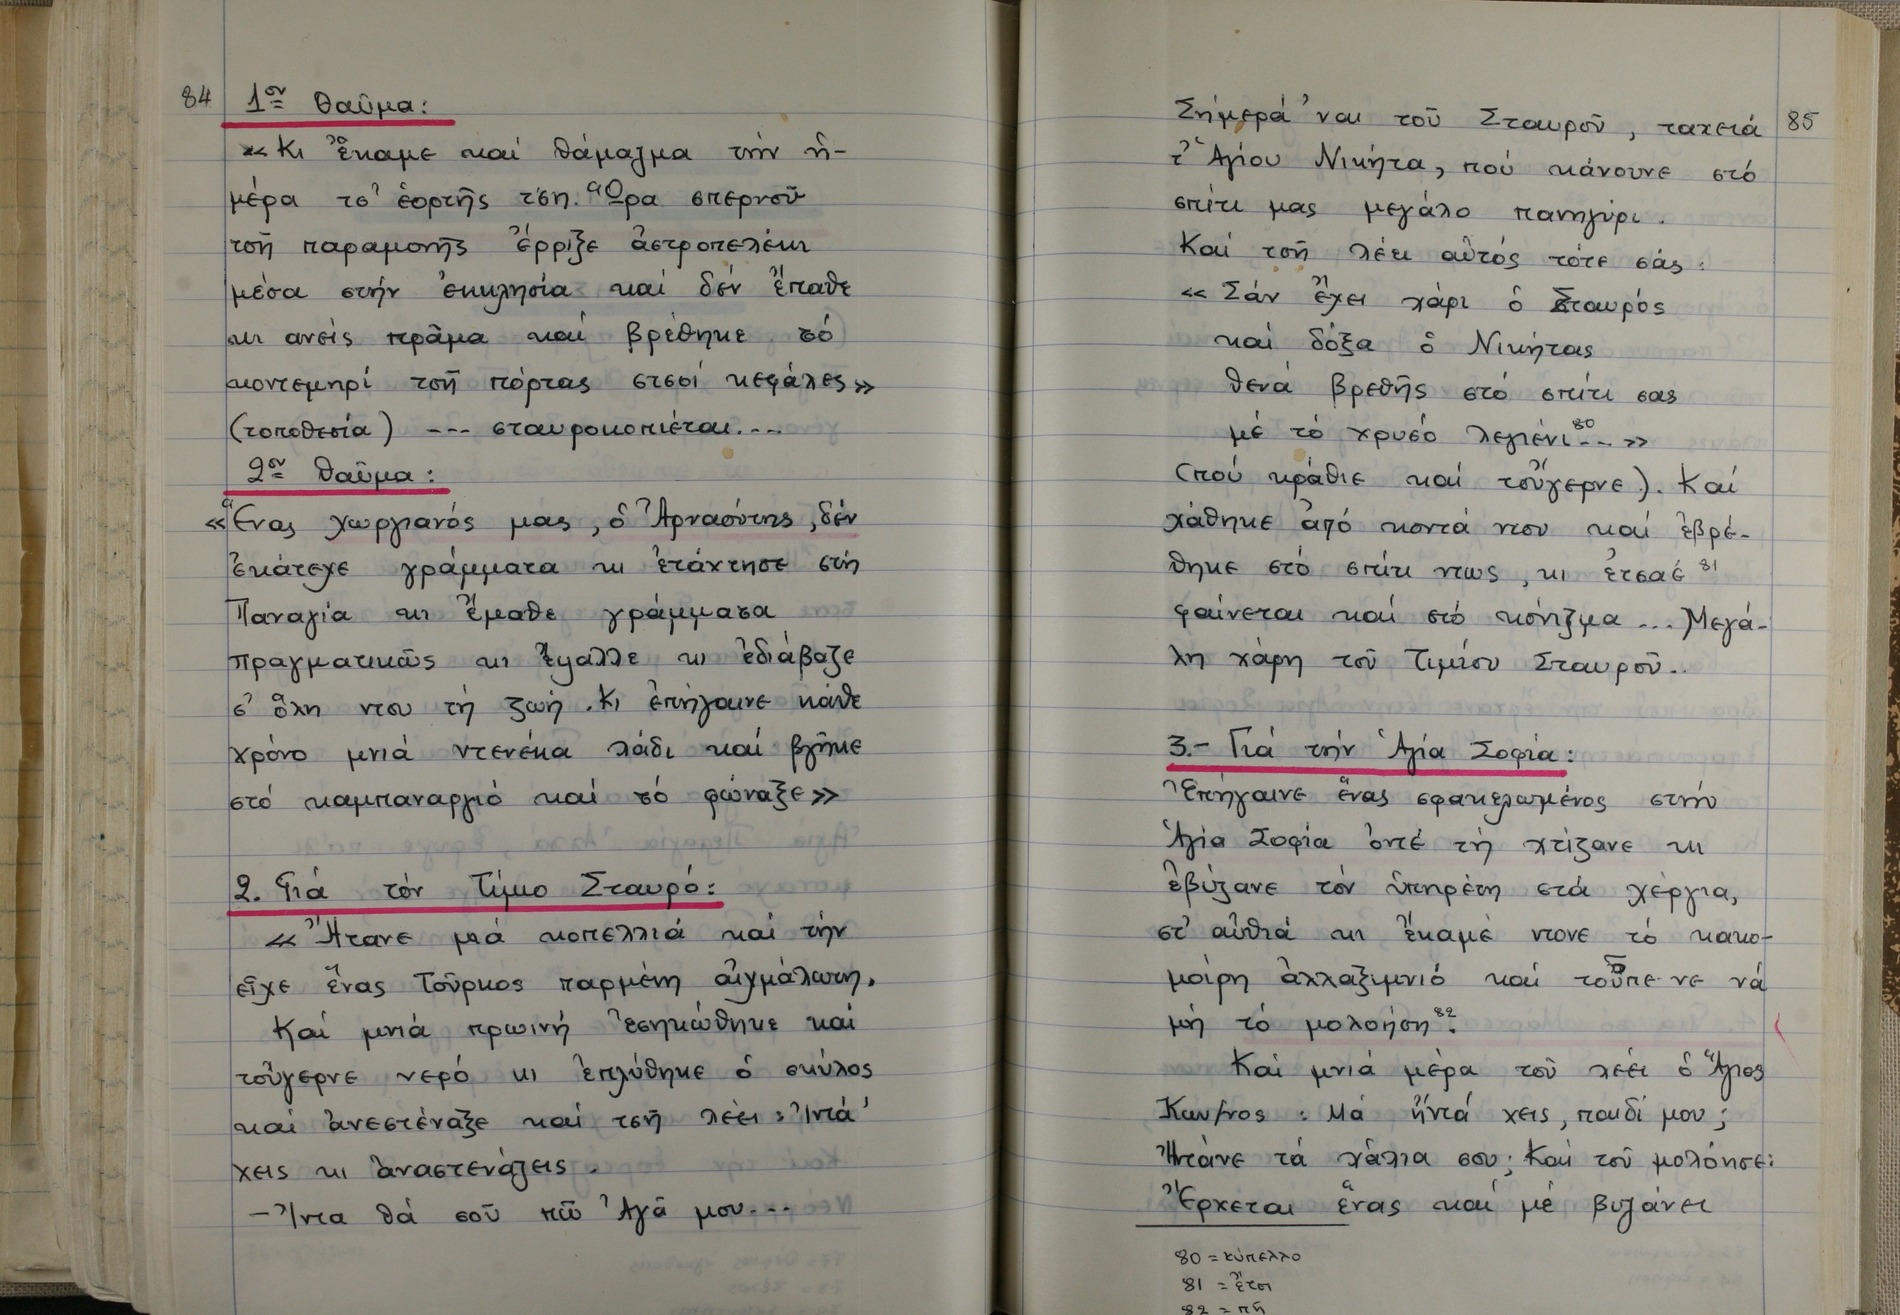 84
1ον θαῦμα:
«Κι ἔκαμε καί θάμαγμα τήν ἡ-
μέρα τσ' ἑορτῆς τση. Ὥρα σπερνοῦ
τσῆ παραμονῆς ἔρριξε ἀστροπελέκι
μέσα στήν ἐκκλησία καί δέν ἔπαθε
κι ανείς πρᾶμα καί βρέθηκε τό
κοντεμηρί τσῆ πόρτας στσοί κεφάλες»
(τοποθεσία) --- σταυροκοπιέται....
2ον θαῦμα:
«Ἕνας χωργιανός μας, ὁ Ἀρνασούτης, δέν
ἐκάτεχε γράμματα κι ἐτάχτησε στή
Παναγία κι ἔμαθε γράμματα
πραγματικῶς κι ἔψαλλε κι ἐδιάβαζε
σ' ὅλη ντου τή ζωή. Κι ἐπήγαινε κάθε
χρόνο μνιά ντενέκα λάδι καί βγῆκε
στό καμπαναργιό καί τό φώναξε»
2. Γιά τόν Τίμιο Σταυρό:
«Ἤτανε μιά κοπελλιά καί τήν
εἶχε ἕνας Τοῦρκος παρμένη αἰχμάλωτη.
Καί μνιά πρωινή ἐσηκώθηκε καί
τοὔγερνε νερό κι ἐπλύθηκε ὁ σκύλος
καί ἀνεστέναξε καί τσῆ λέει: Ἰντά'
χεις κι ἀναστενάζεις.
-Ἴντα θά σοῦ πῶ Ἀγᾶ μου...
85
Σήμερά 'ναι τοῦ Σταυροῦ, ταχειά
τ' Ἁγίου Νικήτα, πού κάνουνε στό
σπίτι μας μεγάλο πανηγύρι.
Καί τσῆ λέει αὐτός τότε σάς:
«Σάν ἔχει χάρι ὁ Σταυρός
καί δόξα ὁ Νικήτας
θενά βρεθῆς στό σπίτι σας
μέ τό χρυσό λεγένι 80... »
(πού κράθιε καί τοὔγερνε). Καί
χάθηκε ἀπό κοντά ντου καί ἐβρέ-
θηκε στό σπίτι ντως, κι ἐτσαέ 81
φαίνεται καί στό κόνιζμα ... Μεγά-
λη χάρη τοῦ Τιμίου Σταυροῦ..
3.- Γιά τήν Ἁγία Σοφία:
Ἐπήγαινε ἕνας σφακελωμένος στήν
Ἁγία Σοφία ὀντέ τή χτίζανε κι
ἐβύζανε τόν ὑπηρέτη στά χέργια,
στ' αὐθιά κι ἔκαμέ ντονε τό κακο-
μοίρη ἀλλαξιμνιό καί τοὖπε νε νά
μή τό μολοήση 82.
Καί μνιά μέρα τοῦ λέει ὁ Ἅγιος
Κων/νος: Μά ἤντά χεις, παιδί μου;
Ἤντάνε τά χάλια σου; Καί τοῦ μολόησε:
Ἔρχεται ἕνας καί μέ βυζάνει
80 = κύπελλο
81 = ἔτσι
82 = πῆ